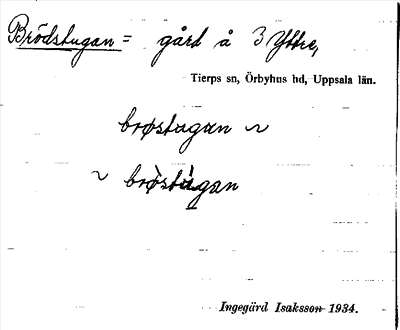 Brödstugan = gård å 3 Yttre,
Tierps sn, Örbyhus hd, Uppsala län.
brøstugan ~
~ brø̀stùgan
Ingegärd Isaksson 1934.